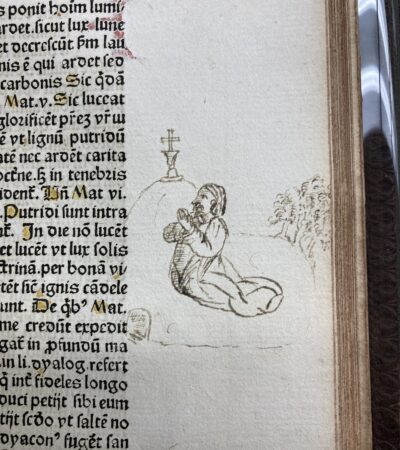 s ponit hoīm lumi/
ardet. sicut lux lune
et decrescūt ẜm lau
onis ē qui ardet sed
carbonis Sic qđā
Mat.v. Sic luceat
glorificēt
ē vt lignū putridū
nec ardēt carita
in tenebris
Mat vi.
Putridi sunt intra
In die nō lucēt
lucēt vt lux solis
ctrinā. per bonā vi/
ignis cādele
unt. De Mat.
me credūt expedit
in ꝓfundū ma
un li. dyalog. refert
int fideles longo
duci petijt sibi eum
tijt vt saltē no
dyacon⁹ fugēt san